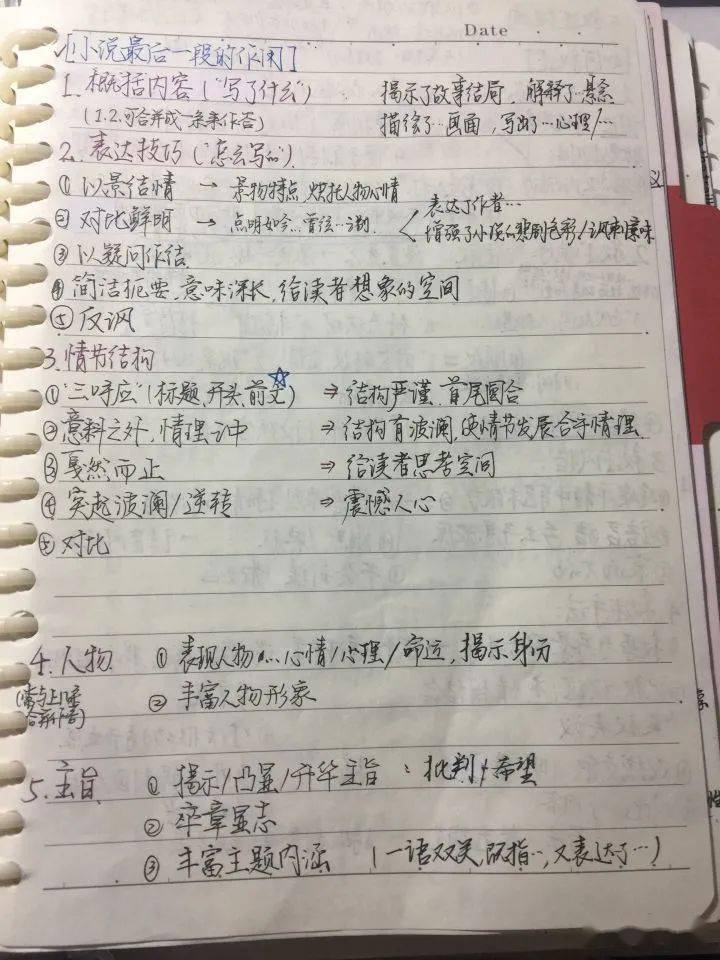 Date
[小说最后一段的作用]
1. 概括内容（"写了什么"） 揭示了故事结局，解释了…悬念
（1.2.可合并成一条来作答） 描绘了…画面，写出了…心理/…
2. 表达技巧（"怎么写的"）
① 以景结情 → 景物特点，烘托人物心情
② 对比鲜明 → 点明如今…曾经… 表达了作者…
增强了小说的悲剧色彩/讽刺意味
③ 以疑问作结
④ 简洁扼要，意味深长，给读者想象的空间
⑤ 反讽
3. 情节结构
① "三呼应"（标题、开头、前文☆） ⇒ 结构严谨，首尾圆合
② 意料之外，情理之中 ⇒ 结构有波澜，使情节发展合乎情理
③ 戛然而止 ⇒ 给读者思考空间
④ 突起波澜/逆转 ⇒ 震憾人心
⑤ 对比
4. 人物 ① 表现人物…心情/心理/命运，揭示身份
② 丰富人物形象
5. 主旨 ① 揭示/凸显/升华主旨：批判/希望
② 卒章显志
③ 丰富主题内涵 （一语双关，既指…，又表达了…）